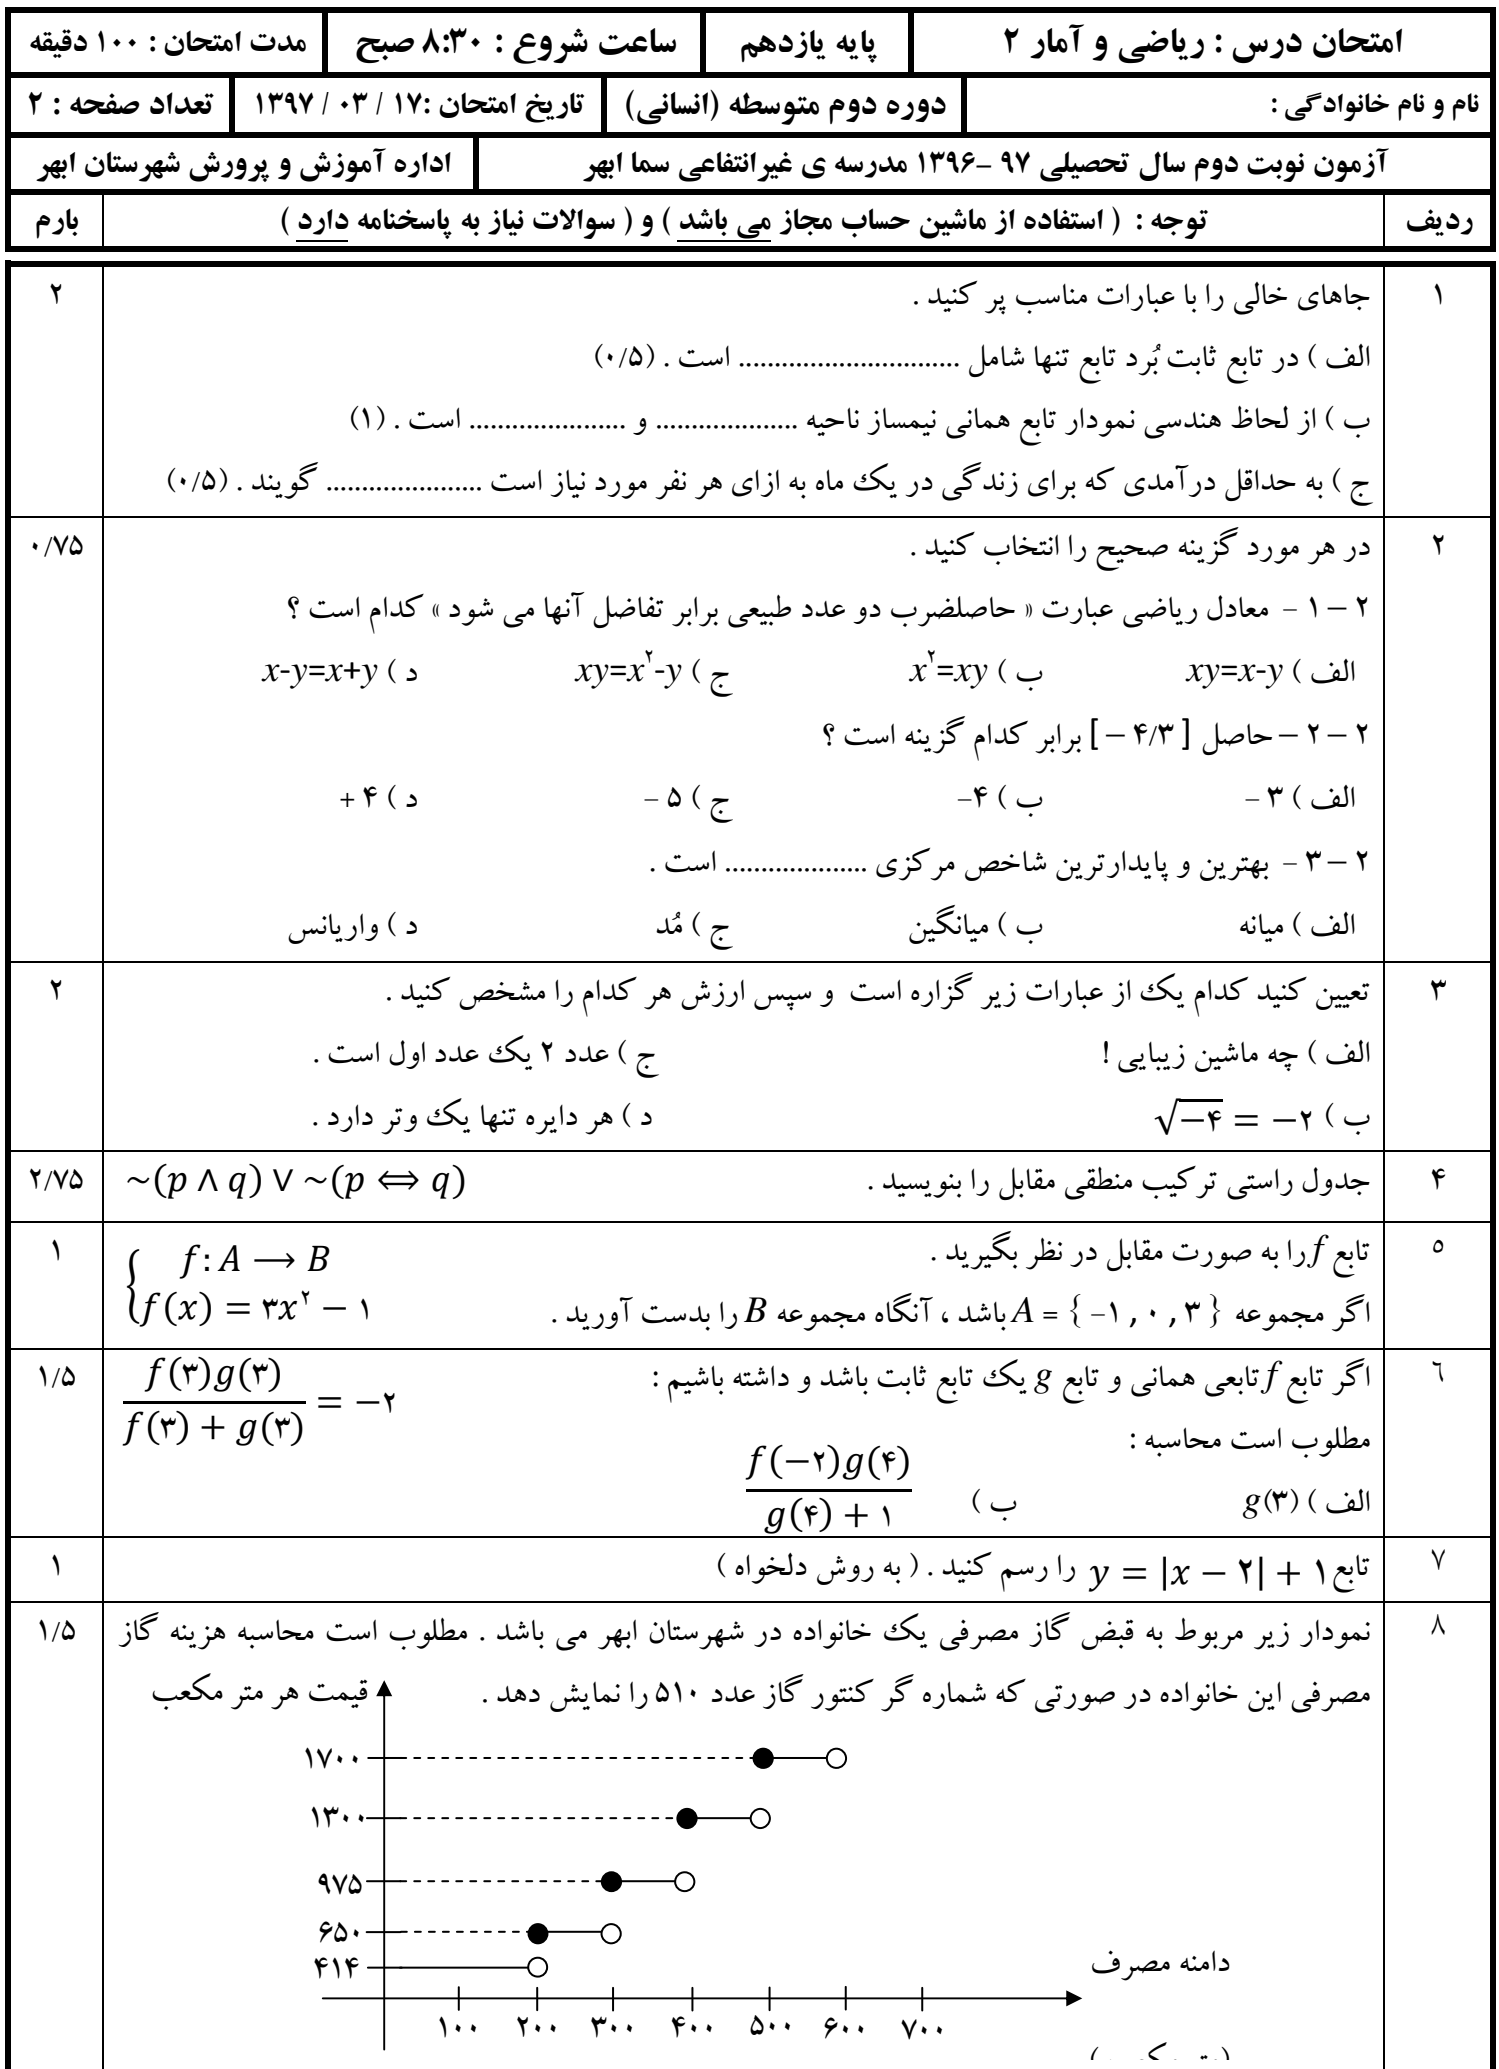 امتحان درس : ریاضی و آمار ۲ پایه یازدهم ساعت شروع : ۸:۳۰ صبح مدت امتحان : ۱۰۰ دقیقه
نام و نام خانوادگی : دوره دوم متوسطه (انسانی) تاریخ امتحان :۱۷ / ۰۳ / ۱۳۹۷ تعداد صفحه : ۲
آزمون نوبت دوم سال تحصیلی ۹۷ –۱۳۹۶ مدرسه ی غیرانتفاعی سما ابهر اداره آموزش و پرورش شهرستان ابهر
ردیف توجه : ( استفاده از ماشین حساب مجاز می باشد ) و ( سوالات نیاز به پاسخنامه دارد ) بارم
۱ جاهای خالی را با عبارات مناسب پر کنید . ۲
الف ) در تابع ثابت بُرد تابع تنها شامل ............................... است . (۰/۵)
ب ) از لحاظ هندسی نمودار تابع همانی نیمساز ناحیه .................... و ...................... است . (۱)
ج ) به حداقل درآمدی که برای زندگی در یک ماه به ازای هر نفر مورد نیاز است ...................... گویند . (۰/۵)
۲ در هر مورد گزینه صحیح را انتخاب کنید . ۰/۷۵
۲ – ۱ – معادل ریاضی عبارت « حاصلضرب دو عدد طبیعی برابر تفاضل آنها می شود » کدام است ؟
الف ) xy=x-y ب ) x²=xy ج ) xy=x²-y د ) x-y=x+y
۲ – ۲ – حاصل [ ۴/۳ – ] برابر کدام گزینه است ؟
الف ) ۳ – ب ) ۴– ج ) ۵ – د ) ۴ +
۲ – ۳ – بهترین و پایدارترین شاخص مرکزی .................... است .
الف ) میانه ب ) میانگین ج ) مُد د ) واریانس
۳ تعیین کنید کدام یک از عبارات زیر گزاره است و سپس ارزش هر کدام را مشخص کنید . ۲
الف ) چه ماشین زیبایی ! ج ) عدد ۲ یک عدد اول است .
ب ) √−۴ = −۲ د ) هر دایره تنها یک وتر دارد .
۴ جدول راستی ترکیب منطقی مقابل را بنویسید . ~(p ∧ q) ∨ ~(p ⟺ q) ۲/۷۵
۵ تابع f را به صورت مقابل در نظر بگیرید . f: A ⟶ B ۱
اگر مجموعه A = { –۱ , ۰ , ۳ } باشد ، آنگاه مجموعه B را بدست آورید . f(x) = ۳x² − ۱
۶ اگر تابع f تابعی همانی و تابع g یک تابع ثابت باشد و داشته باشیم : f(۳)g(۳) / f(۳) + g(۳) = −۲ ۱/۵
مطلوب است محاسبه :
الف ) g(۳) ب ) f(−۲)g(۴) / g(۴) + ۱
۷ تابع y = |x − ۲| + ۱ را رسم کنید . ( به روش دلخواه ) ۱
۸ نمودار زیر مربوط به قبض گاز مصرفی یک خانواده در شهرستان ابهر می باشد . مطلوب است محاسبه هزینه گاز ۱/۵
مصرفی این خانواده در صورتی که شماره گر کنتور گاز عدد ۵۱۰ را نمایش دهد . قیمت هر متر مکعب
۱۷۰۰
۱۳۰۰
۹۷۵
۶۵۰
۴۱۴
دامنه مصرف
۱۰۰ ۲۰۰ ۳۰۰ ۴۰۰ ۵۰۰ ۶۰۰ ۷۰۰